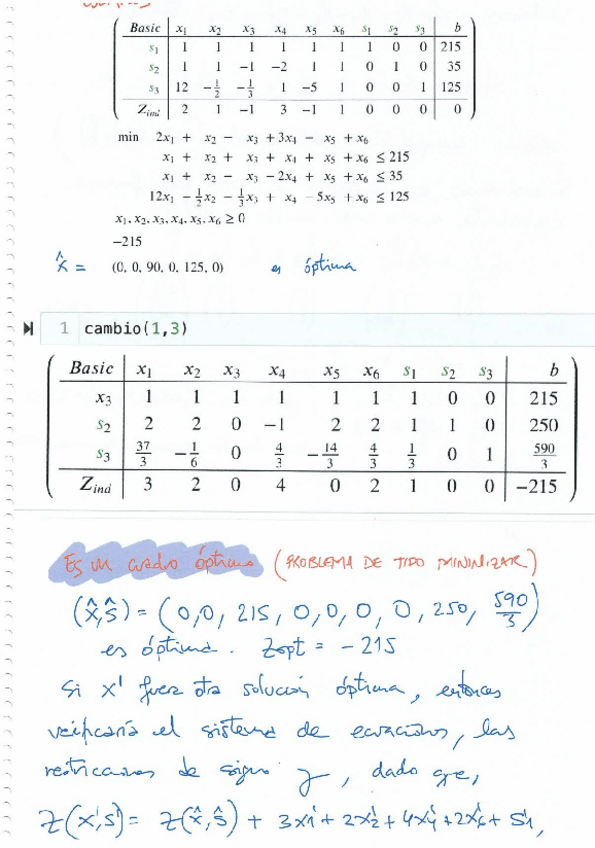 Basic x₁ x₂ x₃ x₄ x₅ x₆ s₁ s₂ s₃ b
s₁ 1 1 1 1 1 1 1 0 0 215
s₂ 1 1 −1 −2 1 1 0 1 0 35
s₃ 12 −1/2 −1/3 1 −5 1 0 0 1 125
Z_ind 2 1 −1 3 −1 1 0 0 0 0
min 2x₁ + x₂ − x₃ + 3x₄ − x₅ + x₆
x₁ + x₂ + x₃ + x₄ + x₅ + x₆ ≤ 215
x₁ + x₂ − x₃ − 2x₄ + x₅ + x₆ ≤ 35
12x₁ − 1/2x₂ − 1/3x₃ + x₄ − 5x₅ + x₆ ≤ 125
x₁, x₂, x₃, x₄, x₅, x₆ ≥ 0
−215
x̂ = (0, 0, 90, 0, 125, 0) es óptima
1 cambio(1,3)
Basic x₁ x₂ x₃ x₄ x₅ x₆ s₁ s₂ s₃ b
x₃ 1 1 1 1 1 1 1 0 0 215
s₂ 2 2 0 −1 2 2 1 1 0 250
s₃ 37/3 −1/6 0 4/3 −14/3 4/3 1/3 0 1 590/3
Z_ind 3 2 0 4 0 2 1 0 0 −215
Es un cuadro óptimo (PROBLEMA DE TIPO MINIMIZAR)
(x̂,ŝ) = (0,0, 215, 0,0,0, 0, 250, 590/3)
es óptima. Zopt = −215
Si x' fuera otra solución óptima, entonces
verificaría el sistema de ecuaciones, las
restricciones de signo y, dado que,
Z(x',s') = Z(x̂,ŝ) + 3x₁' + 2x₂' + 4x₄' + 2x₆' + s₁',